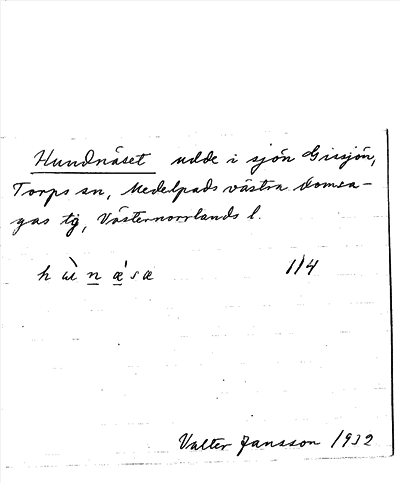 Hundnäset udde i sjön Gissjön,
Torps sn, Medelpads västra domsa-
gas tg, Västernorrlands l.
1/4
Valter Jansson 1932